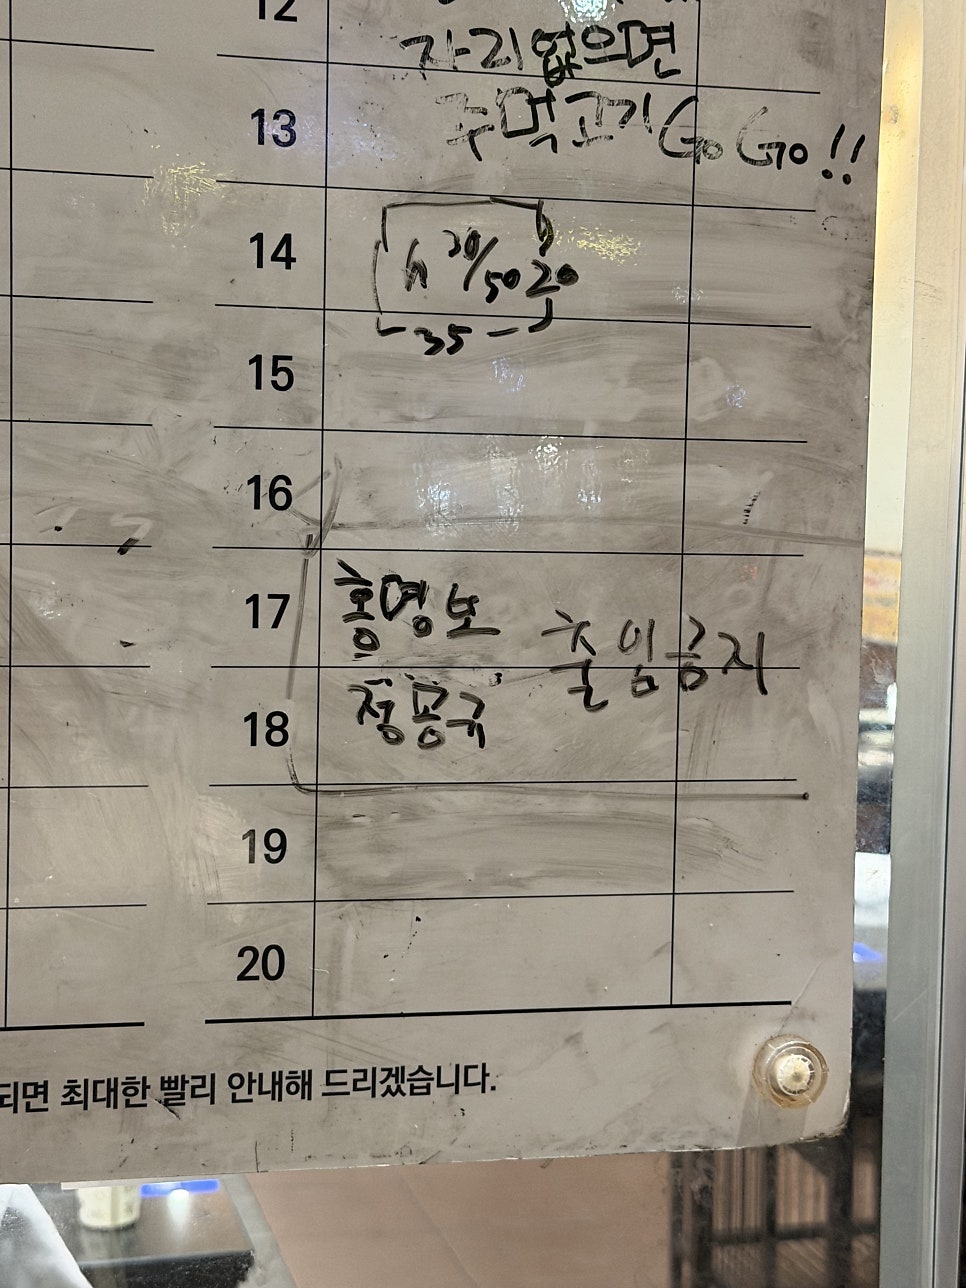 12
자리없으면
13 주먹고기 Go Go!!
14 30/50 20
35
15
16
17 홍명보 출입금지
18 정몽규
19
20
되면 최대한 빨리 안내해 드리겠습니다.